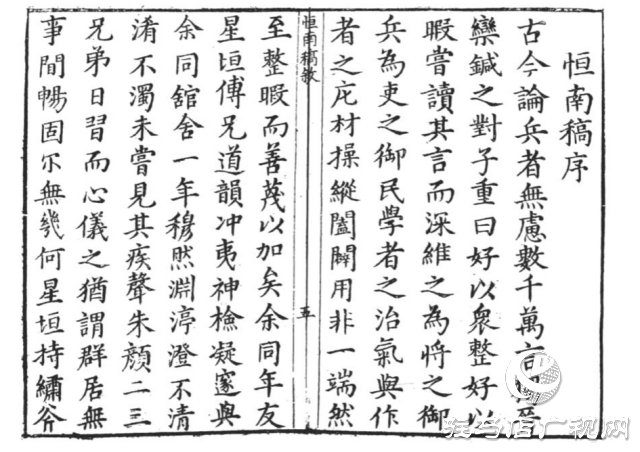 恒南稿序
古今論兵者無慮數千萬言
欒鍼之對子重曰好以衆整好以
暇嘗讀其言而深維之為將之御
兵為吏之御民學者之治氣與作
者之庀材操縱闔闢用非一端然
恒南稿敘
五
至整暇而善蔑以加矣余同年友
星垣傅兄道韻冲夷神檢凝邃與
余同舘舍一年穆然淵渟澄不清
淆不濁未嘗見其疾聲朱顏二三
兄弟日習而心儀之猶謂群居無
事間暢固尔無幾何星垣持繡斧
驻马店广视网